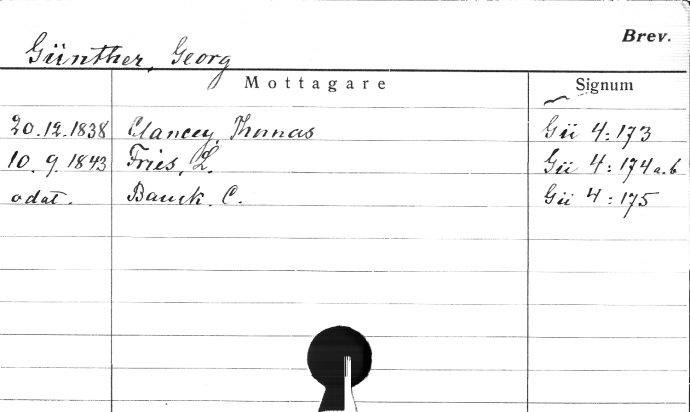 Brev.
Günther, Georg
Mottagare Signum
20.12.1838 Clancey, Thomas Gü 4:173
10.9.1843 Fries, L. Gü 4:174 a.b
odat. Bauck, C. Gü 4:175